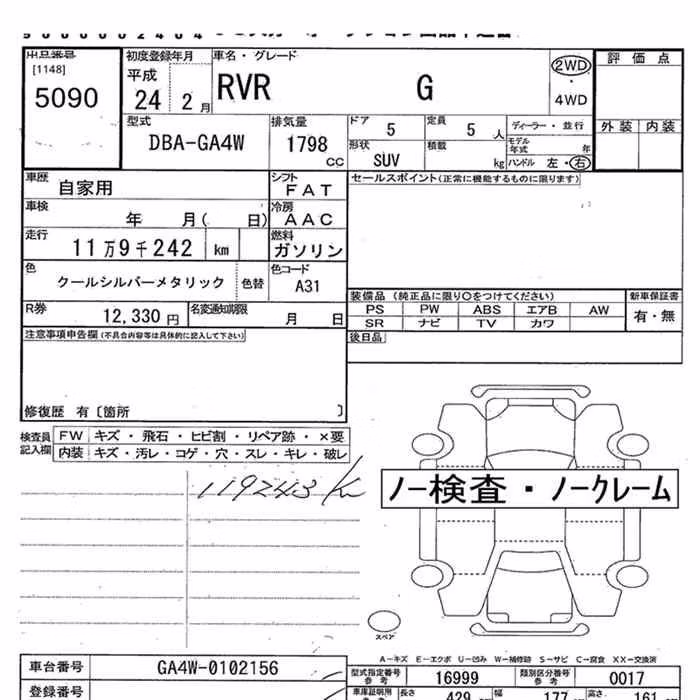 出品番号 初度登録年月 車名・グレード
[1148] 平成 2WD 評価点
5090 24 2月 RVR G ・
4WD
型式 排気量 ドア 5 定員 5人 ディーラー・並行 外装 内装
DBA-GA4W 1798 CC 形状 SUV 積載 kg モデル年式 年
ハンドル 左・右
車歴 自家用 シフト FAT セールスポイント(正常に機能するものに限ります)
車検 年 月( 日) 冷房 AAC
走行 11万9千242 km 燃料 ガソリン
色 クールシルバーメタリック 色替 色コード A31
R券 12,330円 名変通知期限 月 日
装備品 (純正品に限り○をつけてください) 新車保証書
PS PW ABS エアB AW 有・無
SR ナビ TV カワ
注意事項申告欄(不具合内容等は具体的に記入して下さい) 後日品
修復歴 有〔箇所 〕
検査員記入欄 FW キズ・飛石・ヒビ割・リペア跡・×要
内装 キズ・汚レ・コゲ・穴・スレ・キレ・破レ
119243 Km
ノー検査・ノークレーム
スペア
A-キズ E-エクボ U-凹み W-補修跡 S-サビ C-腐食 XX-交換済
車台番号 GA4W-0102156 型式指定番号 参考 16999 類別区分番号 参考 0017
登録番号 車庫証明用 参考 長さ 429 幅 177 高さ 161